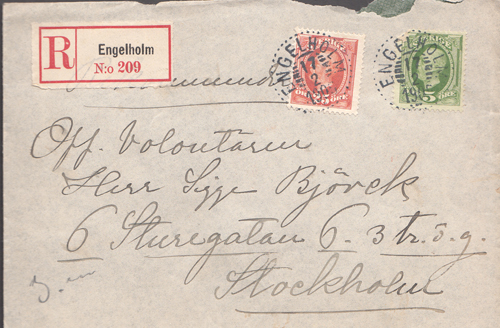 R Engelholm
N:o 209
ENGELHOLM
17 2
ENGELHOLM
17
19
25 ÖRE
5 ÖRE
Off. Volontären
Herr Sigge Björck
6 Sturegatan 6. 3 tr. ö. g.
Stockholm